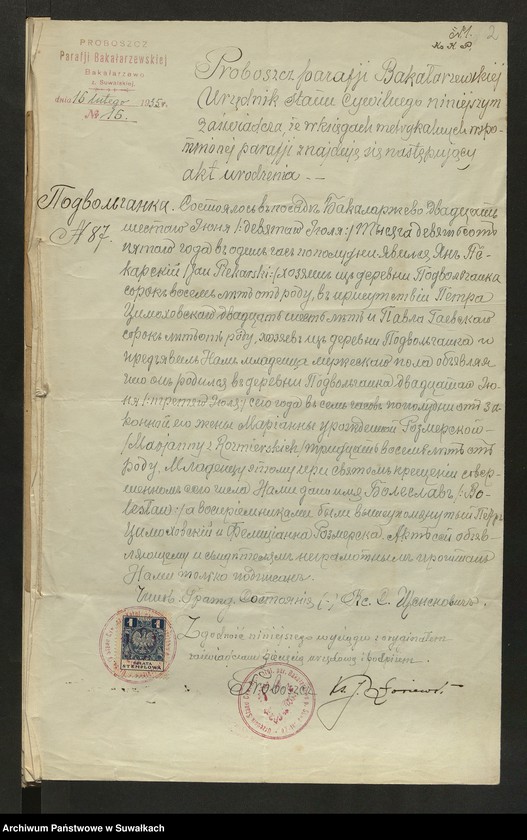 Śl. N1.
Ks. K. P.
2
PROBOSZCZ
Parafji Bakałarzewskiej
Bakałarzewo
z. Suwalskiej.
dnia 15 lutego 1935 r.
№ 15.
Proboszcz parafji Bakałarzewskiej
Urzędnik Stanu Cywilnego niniejszym
zaświadcza że w księgach metrykalnych wspo-
mnionej parafji znajduje się następujący
akt urodzenia. --
Подвольчанка. Состоялось въ посадѣ Бакаларжево двадцать
№ 87.
шестого Іюня /: девятого Іюля :/ тысяча девятьсотъ
пятого года въ одинъ часъ пополудни. Явился Янъ Пе-
карскій /Jan Piekarski:/ хозяинъ изъ деревни Подвольчанка
сорокъ восемь лѣтъ отъ роду, въ присутствіи Петра
Цимоховскаго двадцать шесть лѣтъ и Павла Гаевскаго
сорокъ лѣтъ отъ роду, хозяевъ изъ деревни Подвольчанка и
предъявилъ Намъ младенца мужескаго пола объявляя
что онъ родился въ деревни Подвольчанка двадцатаго Ію-
ня /: третьего Іюля :/ сего года въ семь часовъ пополудни отъ за-
конной его жены Маріанны урожденной Розмерской
/Marjanny z Rozmierskich/ тридцать восемь лѣтъ отъ
роду. Младенцу этому при святомъ крещеніи совер-
шенномъ сего числа Нами дано имя Болеславъ /: Bo-
lesław :/ а воспріемниками были вышеупомянутый Петръ
Цимоховскій и Фелиціанна Розмерска. Актъ сей объя-
вляющему и свидѣтелямъ неграмотнымъ прочитанъ
Нами только подписанъ.
Чинов. Гражд. Состоянія (-) Кс. С.
Zgodność niniejszego wyciągu z oryginałem
zaświadczam pieczęcią urzędową i podpisem.
Proboszcz Ks.
1 1
OPŁATA
STEMPLOWA
Archiwum Państwowe w Suwałkach